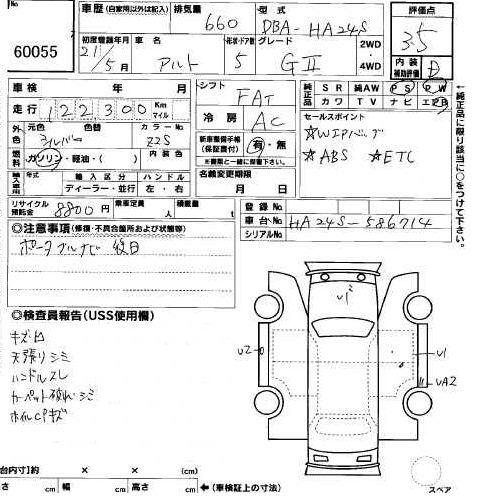 60055
車歴 (自家用以外は記入)
排気量 660
型式 DBA-HA24S
評価点 3.5
初度登録年月 21/5月
車名 アルト
形状・ドア数 5
グレード GⅡ
2WD
4WD
内装補助評価 D
車検 年 月
シフト FAT
純正品 SR 純AW PS PW
カワ TV ナビ エアB
走行 122,300 Km マイル
冷房 AC
セールスポイント
外色 元色 色替 カラーNo シルバー Z2S
新車整備手帳(保証書付) 有・無
※書類と一緒に後日提出
☆Wエアバッグ
☆ABS ☆ETC
燃料 ガソリン・軽油・( ) 内装色
輸入車 輸入区分 ハンドル
ディーラー・並行 左・右
名義変更期限 月 日
←純正品に限り該当に○をつけて下さい。
リサイクル預託金 8800円
乗車定員 人
積載量 t
登録No
車台No HA24S-586714
シリアルNo
◎注意事項(修復・不具合箇所および状態等)
ポータブルナビ後日
◎検査員報告(USS使用欄)
キズ凹
天張りシミ
ハンドルスレ
カーペット破れシミ
ホイルCPキズ
U2
U1
UA2
台内寸)約 × ×
さ cm 幅 cm 高さ cm ←(車検証上の寸法)
スペア